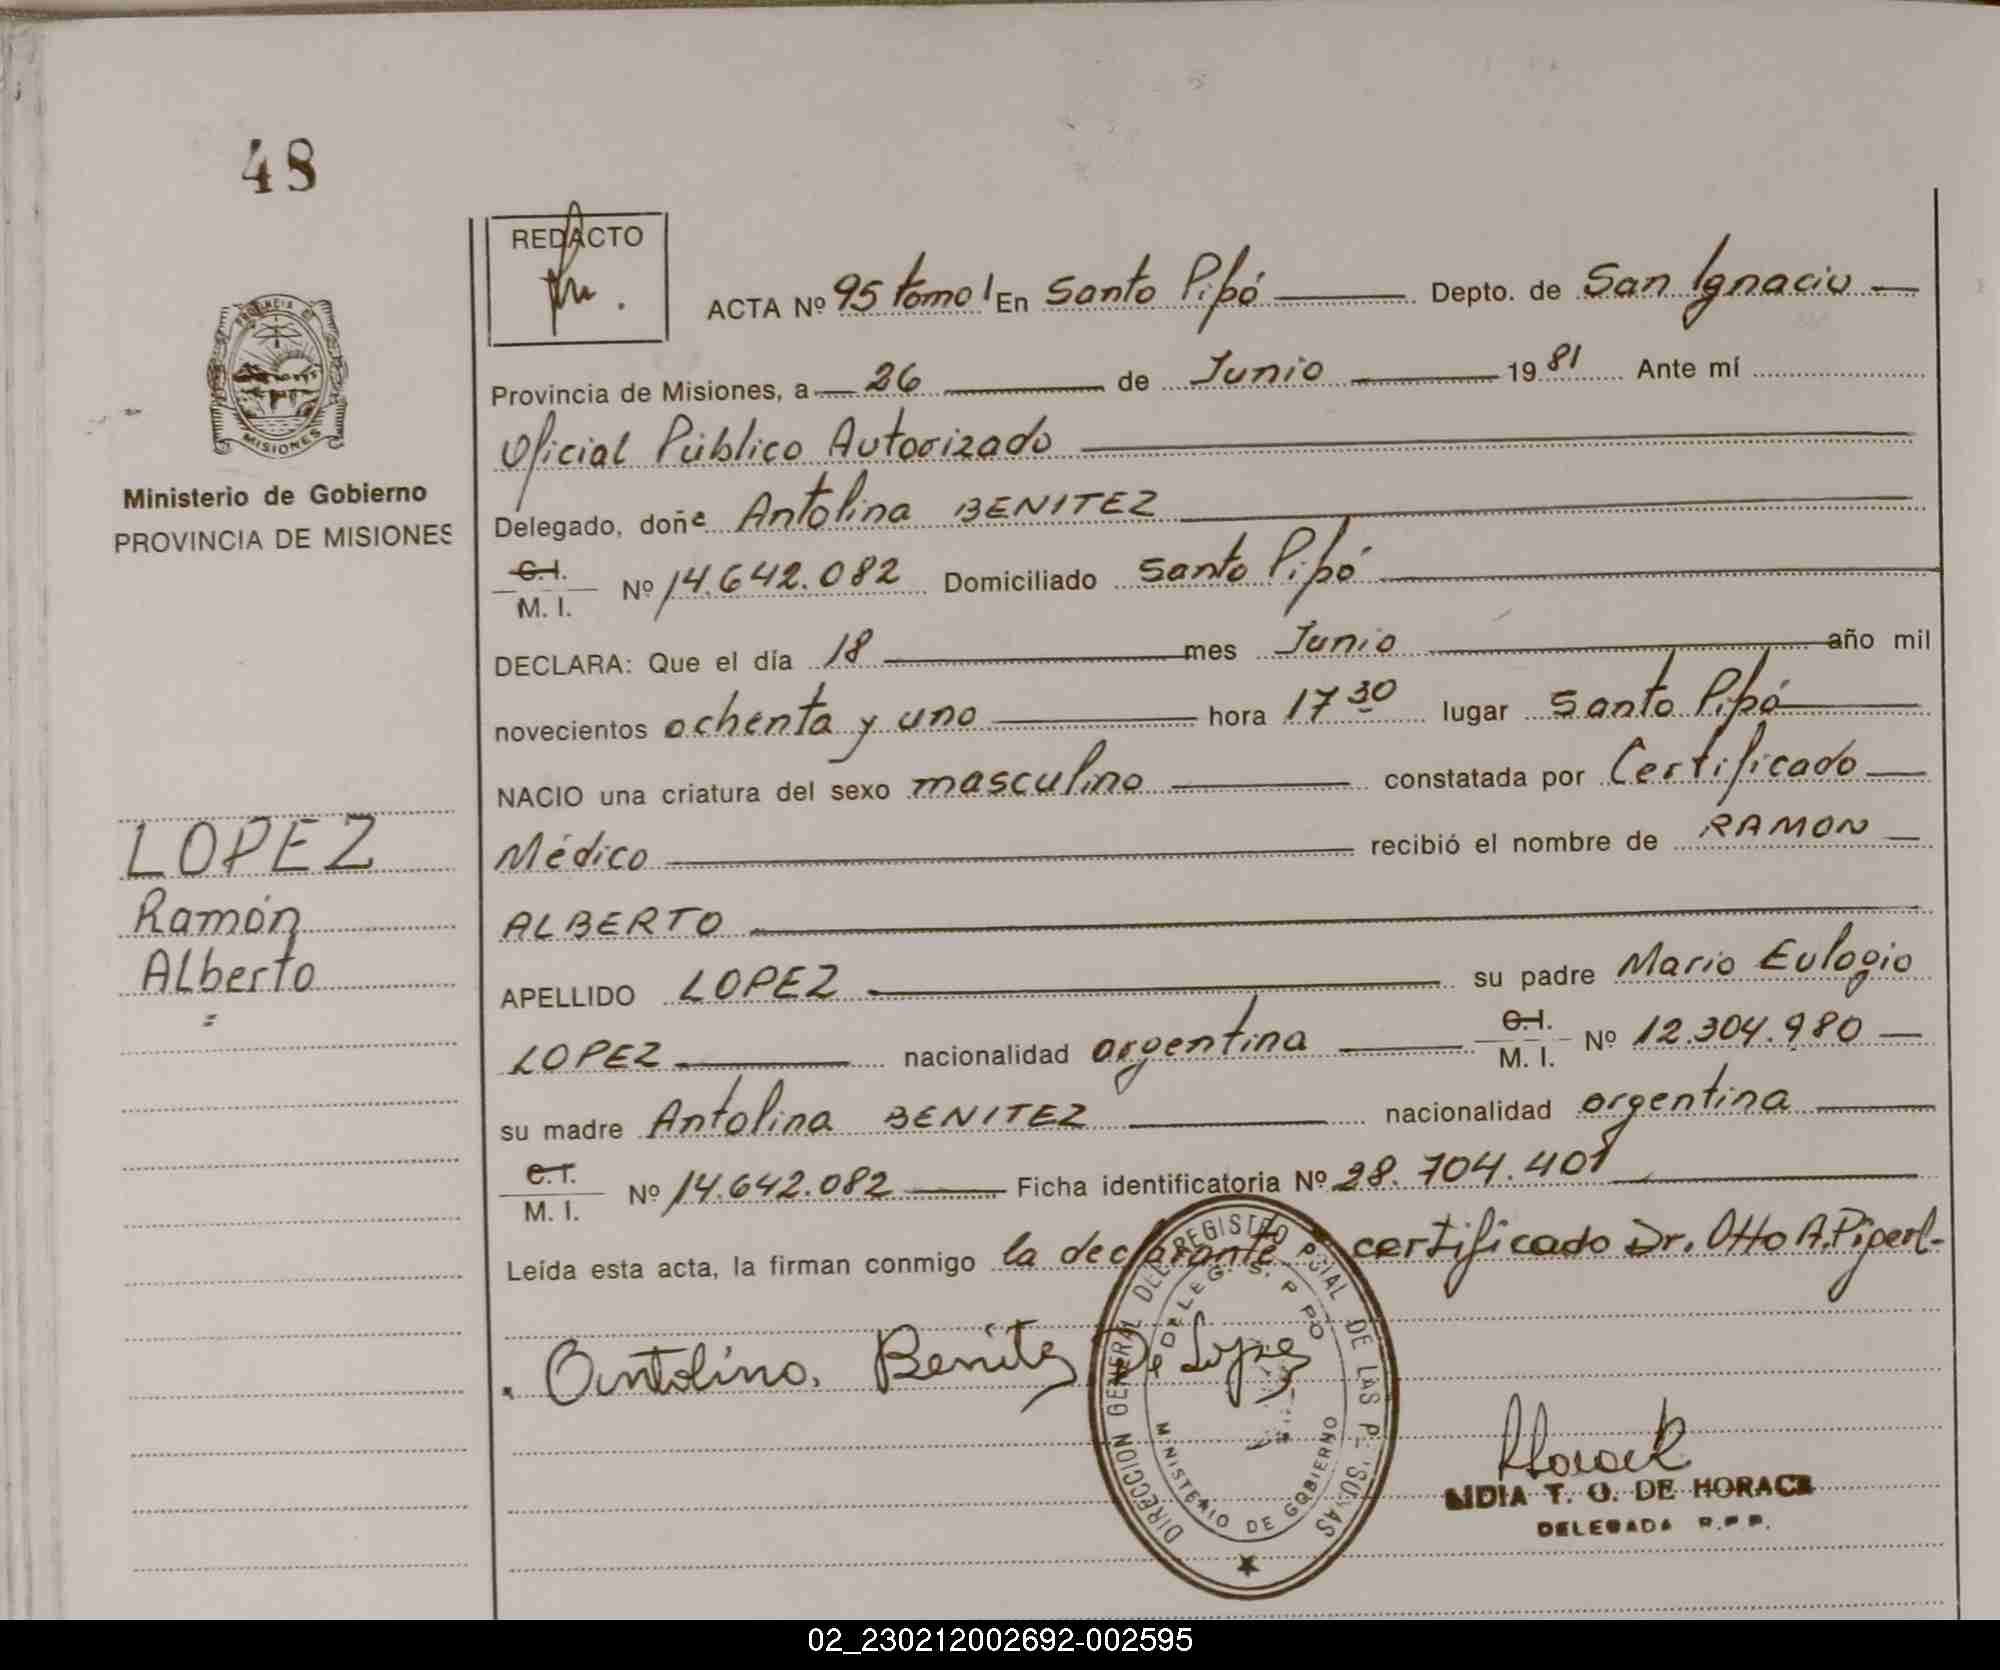 48
REDACTO
ACTA Nº 95 tomo I En Santo Pipó Depto. de San Ignacio
Provincia de Misiones, a 26 de Junio 1981 Ante mí
Oficial Público Autorizado
Delegado, doña Antolina BENITEZ
C.I.
M. I. Nº 14.642.082 Domiciliado Santo Pipó
DECLARA: Que el día 18 mes Junio año mil
novecientos ochenta y uno hora 17 30 lugar Santo Pipó
NACIO una criatura del sexo masculino constatada por Certificado
Médico recibió el nombre de RAMON
ALBERTO
APELLIDO LOPEZ su padre Mario Eulogio
LOPEZ nacionalidad argentina C.I. M. I. Nº 12.304.980
su madre Antolina BENITEZ nacionalidad argentina
C.I.
M. I. Nº 14.642.082 Ficha identificatoria Nº 28.704.401
Leída esta acta, la firman conmigo la declarante certificado Dr. Otto A.
Antolina. Benitez De Lopez
Horack
LIDIA T. O. DE HORACK
DELEGADA R.P.P.
PROVINCIA DE
MISIONES
Ministerio de Gobierno
PROVINCIA DE MISIONES
LOPEZ
Ramón
Alberto
DIRECCION GENERAL DEL REGISTRO DE LAS
DELEG. S.
MINISTERIO DE GOBIERNO
02_230212002692-002595